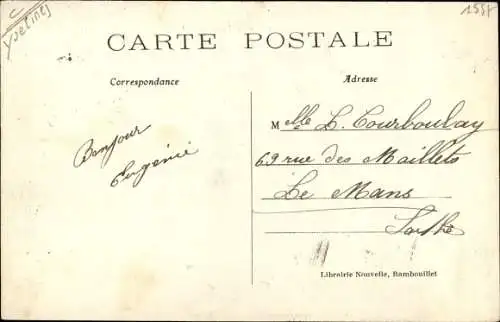 Yvelines
1557
CARTE POSTALE
Correspondance
Adresse
Bonjour
Eugénie
Melle L. Courboulay
69 rue des Maillets
Le Mans
Sarthe
Librairie Nouvelle, Rambouillet